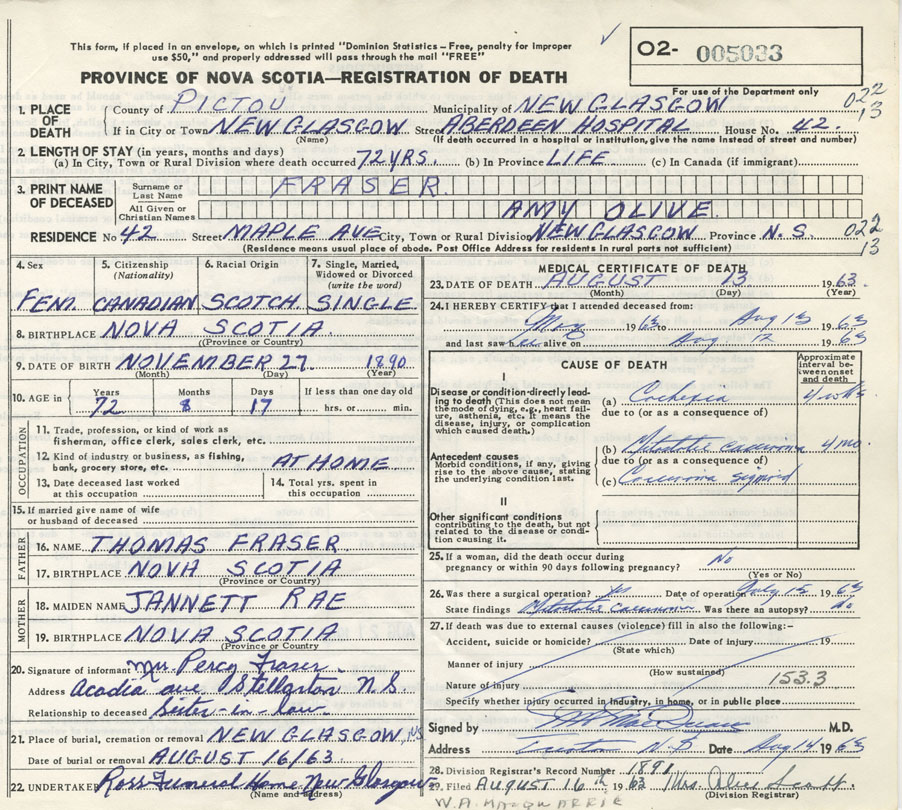 This form, if placed in an envelope, on which is printed "Dominion Statistics – Free, penalty for improper
use $50," and properly addressed will pass through the mail "FREE"
O2- 005033
PROVINCE OF NOVA SCOTIA—REGISTRATION OF DEATH
For use of the Department only
1. PLACE OF DEATH County of PICTOU Municipality of NEW GLASGOW 022
If in City or Town NEW GLASGOW Street ABERDEEN HOSPITAL House No. 42. 13
(Name) (If death occurred in a hospital or institution, give the name instead of street and number)
2. LENGTH OF STAY (in years, months and days)
(a) In City, Town or Rural Division where death occurred 72 YRS. (b) In Province LIFE (c) In Canada (if immigrant)
3. PRINT NAME OF DECEASED Surname or Last Name FRASER
All Given or Christian Names AMY OLIVE
RESIDENCE No 42 Street MAPLE AVE City, Town or Rural Division NEW GLASGOW Province N.S. 022
(Residence means usual place of abode. Post Office Address for residents in rural parts not sufficient) 13
4. Sex 5. Citizenship (Nationality) 6. Racial Origin 7. Single, Married, Widowed or Divorced (write the word)
FEM. CANADIAN SCOTCH SINGLE
8. BIRTHPLACE NOVA SCOTIA
(Province or Country)
9. DATE OF BIRTH NOVEMBER 27 1890
(Month) (Day) (Year)
10. AGE in Years Months Days If less than one day old
72 8 17 hrs. or min.
OCCUPATION
11. Trade, profession, or kind of work as
fisherman, office clerk, sales clerk, etc.
12. Kind of industry or business, as fishing,
bank, grocery store, etc. AT HOME
13. Date deceased last worked
at this occupation
14. Total yrs. spent in
this occupation
15. If married give name of wife
or husband of deceased
FATHER
16. NAME THOMAS FRASER
17. BIRTHPLACE NOVA SCOTIA
(Province or Country)
MOTHER
18. MAIDEN NAME JANNETT RAE
19. BIRTHPLACE NOVA SCOTIA
(Province or Country)
20. Signature of informant Mrs Percy Fraser
Address Acadia ave Stellarton N S
Relationship to deceased Sister-in-law
21. Place of burial, cremation or removal NEW GLASGOW, NS
Date of burial or removal AUGUST 16/63
22. UNDERTAKER Ross Funeral Home, New Glasgow
(Name and address)
MEDICAL CERTIFICATE OF DEATH
23. DATE OF DEATH AUGUST 13 1963
(Month) (Day) (Year)
24. I HEREBY CERTIFY that I attended deceased from:
May 1963 to Aug 13 1963
and last saw her alive on Aug 12 1963
CAUSE OF DEATH
Approximate interval between onset and death
I
Disease or condition directly leading to death (This does not mean the mode of dying, e.g., heart failure, asthenia, etc. It means the disease, injury, or complication which caused death.)
(a) Cachexia 4 wks
due to (or as a consequence of)
Antecedent causes
Morbid conditions, if any, giving rise to the above cause, stating the underlying condition last.
(b) Metastatic carcinoma 4 mo.
due to (or as a consequence of)
(c) Carcinoma sigmoid
II
Other significant conditions
contributing to the death, but not related to the disease or condition causing it.
25. If a woman, did the death occur during
pregnancy or within 90 days following pregnancy? No
(Yes or No)
26. Was there a surgical operation? yes Date of operation July 15 1963
State findings Metastatic carcinoma Was there an autopsy? No
27. If death was due to external causes (violence) fill in also the following:–
Accident, suicide or homicide? Date of injury 19
(State which)
Manner of injury
(How sustained)
Nature of injury 153.3
Specify whether injury occurred in industry, in home, or in public place
Signed by M.D.
Address N.S. Date Aug 14 1963
28. Division Registrar's Record Number 1891
29. Filed AUGUST 16th 1963 Mrs.
(Division Registrar)
W.A. MACQUARRIE